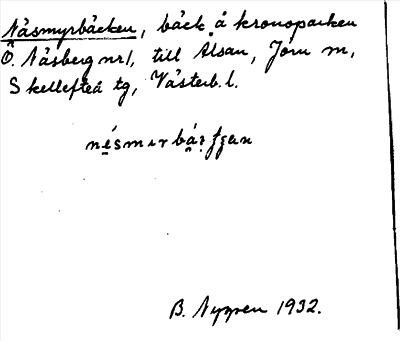 Näsmyrbäcken, bäck å kronoparken
Ö. Näsberg nr1, till Ålsan, Jörn sn,
Skellefteå tg, Västerb. l.
B. Nyzzen 1932.